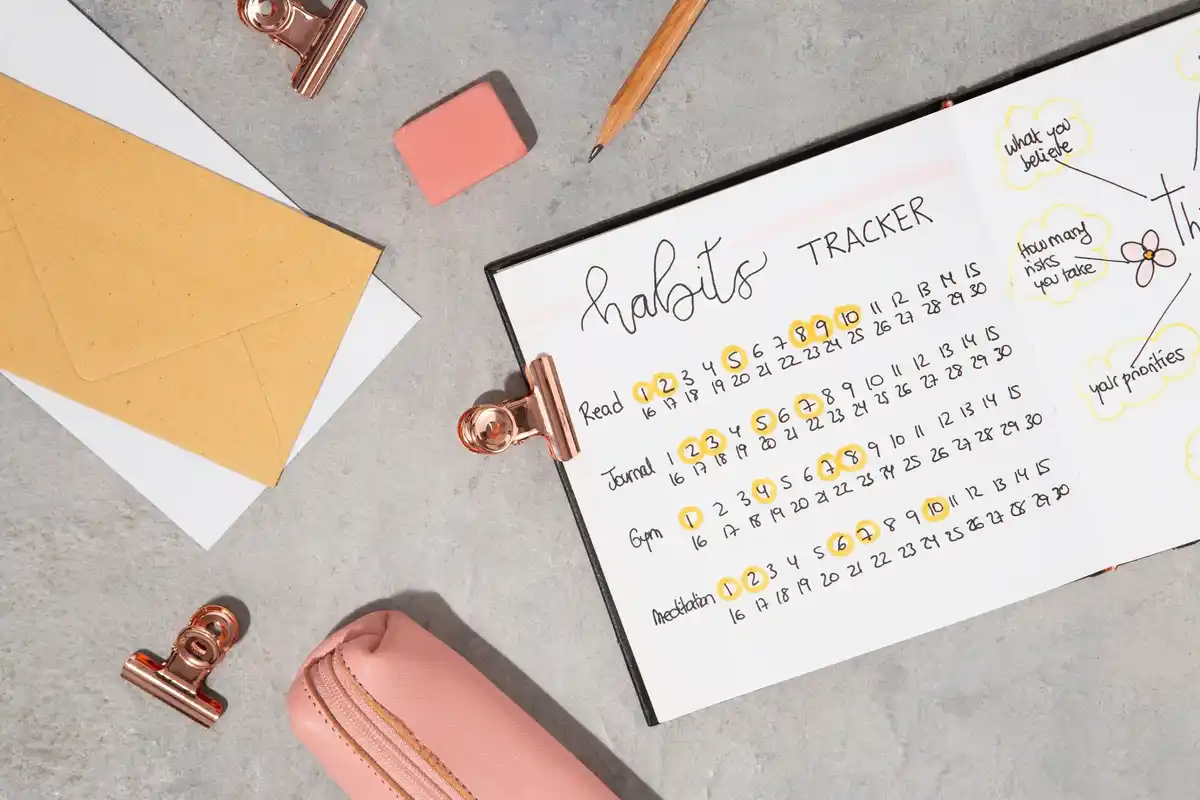 habits TRACKER
Read 1 2 3 4 5 6 7 8 9 10 11 12 13 14 15
16 17 18 19 20 21 22 23 24 25 26 27 28 29 30
Journal 1 2 3 4 5 6 7 8 9 10 11 12 13 14 15
16 17 18 19 20 21 22 23 24 25 26 27 28 29 30
Gym 1 2 3 4 5 6 7 8 9 10 11 12 13 14 15
16 17 18 19 20 21 22 23 24 25 26 27 28 29 30
Meditation 1 2 3 4 5 6 7 8 9 10 11 12 13 14 15
16 17 18 19 20 21 22 23 24 25 26 27 28 29 30
what you
believe
How many
risks
you take
your priorities